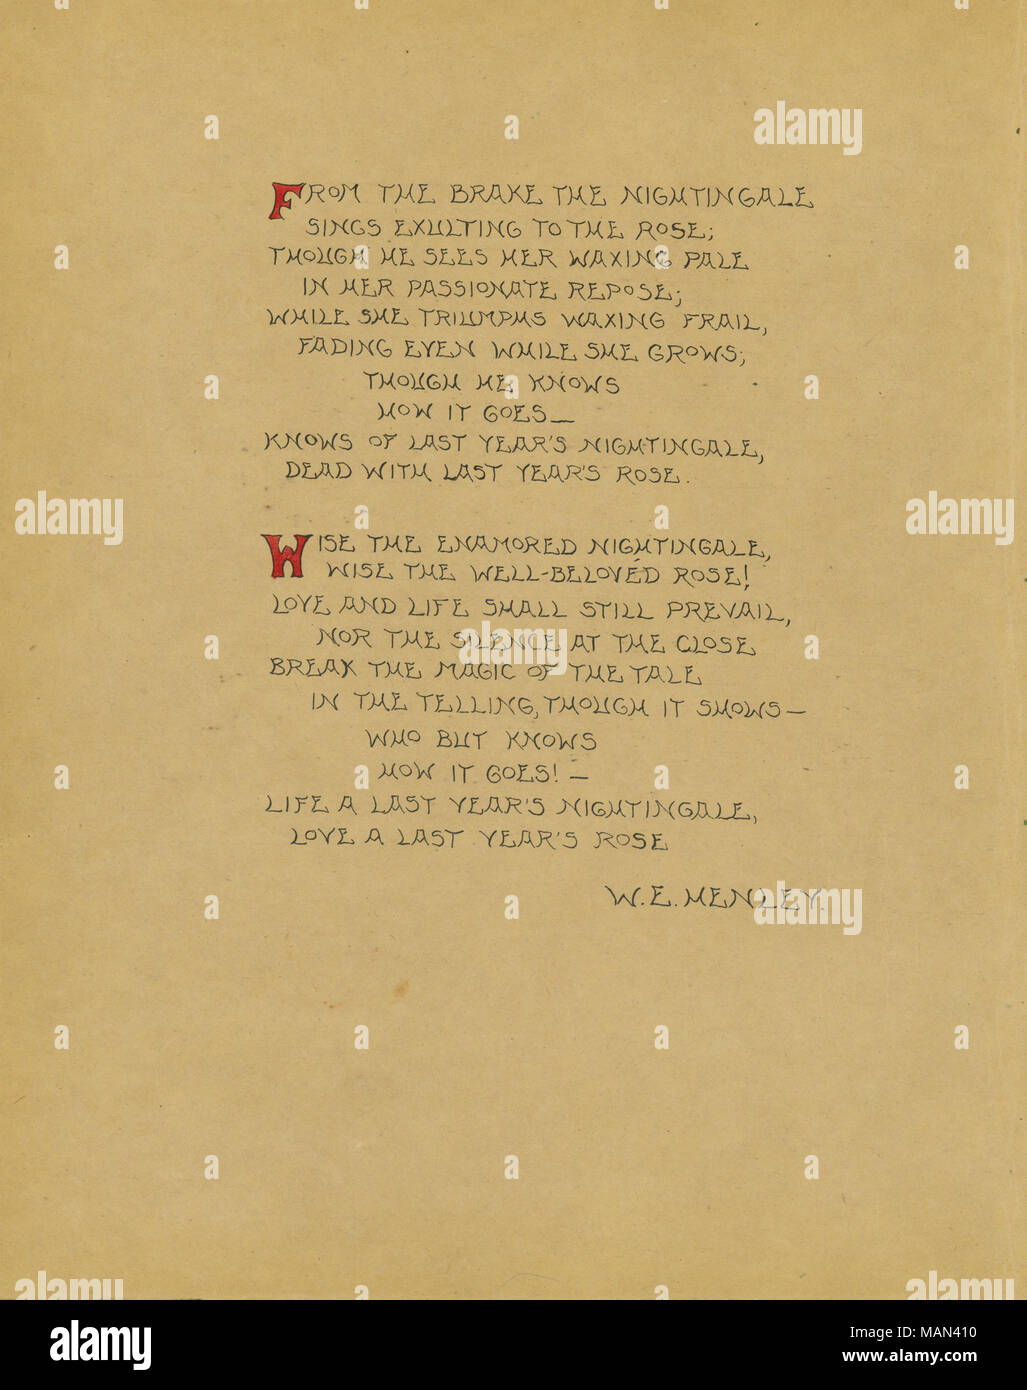 FROM THE BRAKE THE NIGHTINGALE
SINGS EXULTING TO THE ROSE;
THOUGH HE SEES HER WAXING PALE
IN HER PASSIONATE REPOSE;
WHILE SHE TRIUMPHS WAXING FRAIL,
FADING EVEN WHILE SHE GROWS;
THOUGH HE KNOWS
HOW IT GOES—
KNOWS OF LAST YEAR'S NIGHTINGALE,
DEAD WITH LAST YEAR'S ROSE.
WISE THE ENAMORED NIGHTINGALE,
WISE THE WELL-BELOVÉD ROSE!
LOVE AND LIFE SHALL STILL PREVAIL,
NOR THE SILENCE AT THE CLOSE
BREAK THE MAGIC OF THE TALE
IN THE TELLING, THOUGH IT SHOWS—
WHO BUT KNOWS
HOW IT GOES!—
LIFE A LAST YEAR'S NIGHTINGALE,
LOVE A LAST YEAR'S ROSE
W.E. HENLEY.
alamy
Image ID: MAN410
www.alamy.com